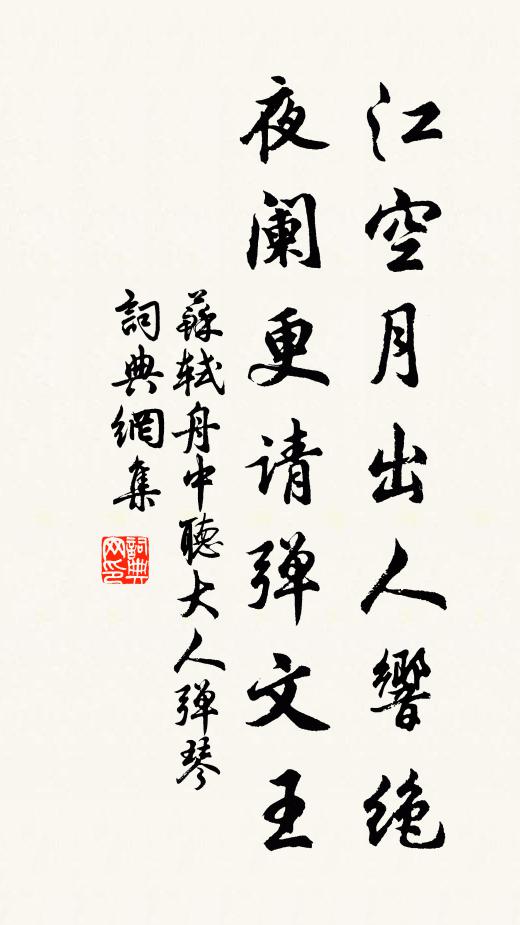 江空月出人響绝
夜阑更请弹文王
蘇軾舟中聽大人弹琴
詞典網集
詞典网印